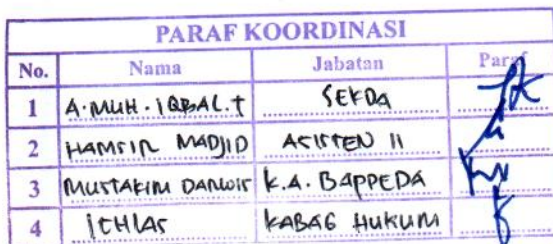 PARAF KOORDINASI
No. Nama Jabatan Paraf
1 A. MUH. IQBAL. T SEKDA
2 HAMSIR MADJID ASISTEN II
3 MUSTAKIM DARWIS K.A. BAPPEDA
4 ICHLAS KABAG HUKUM